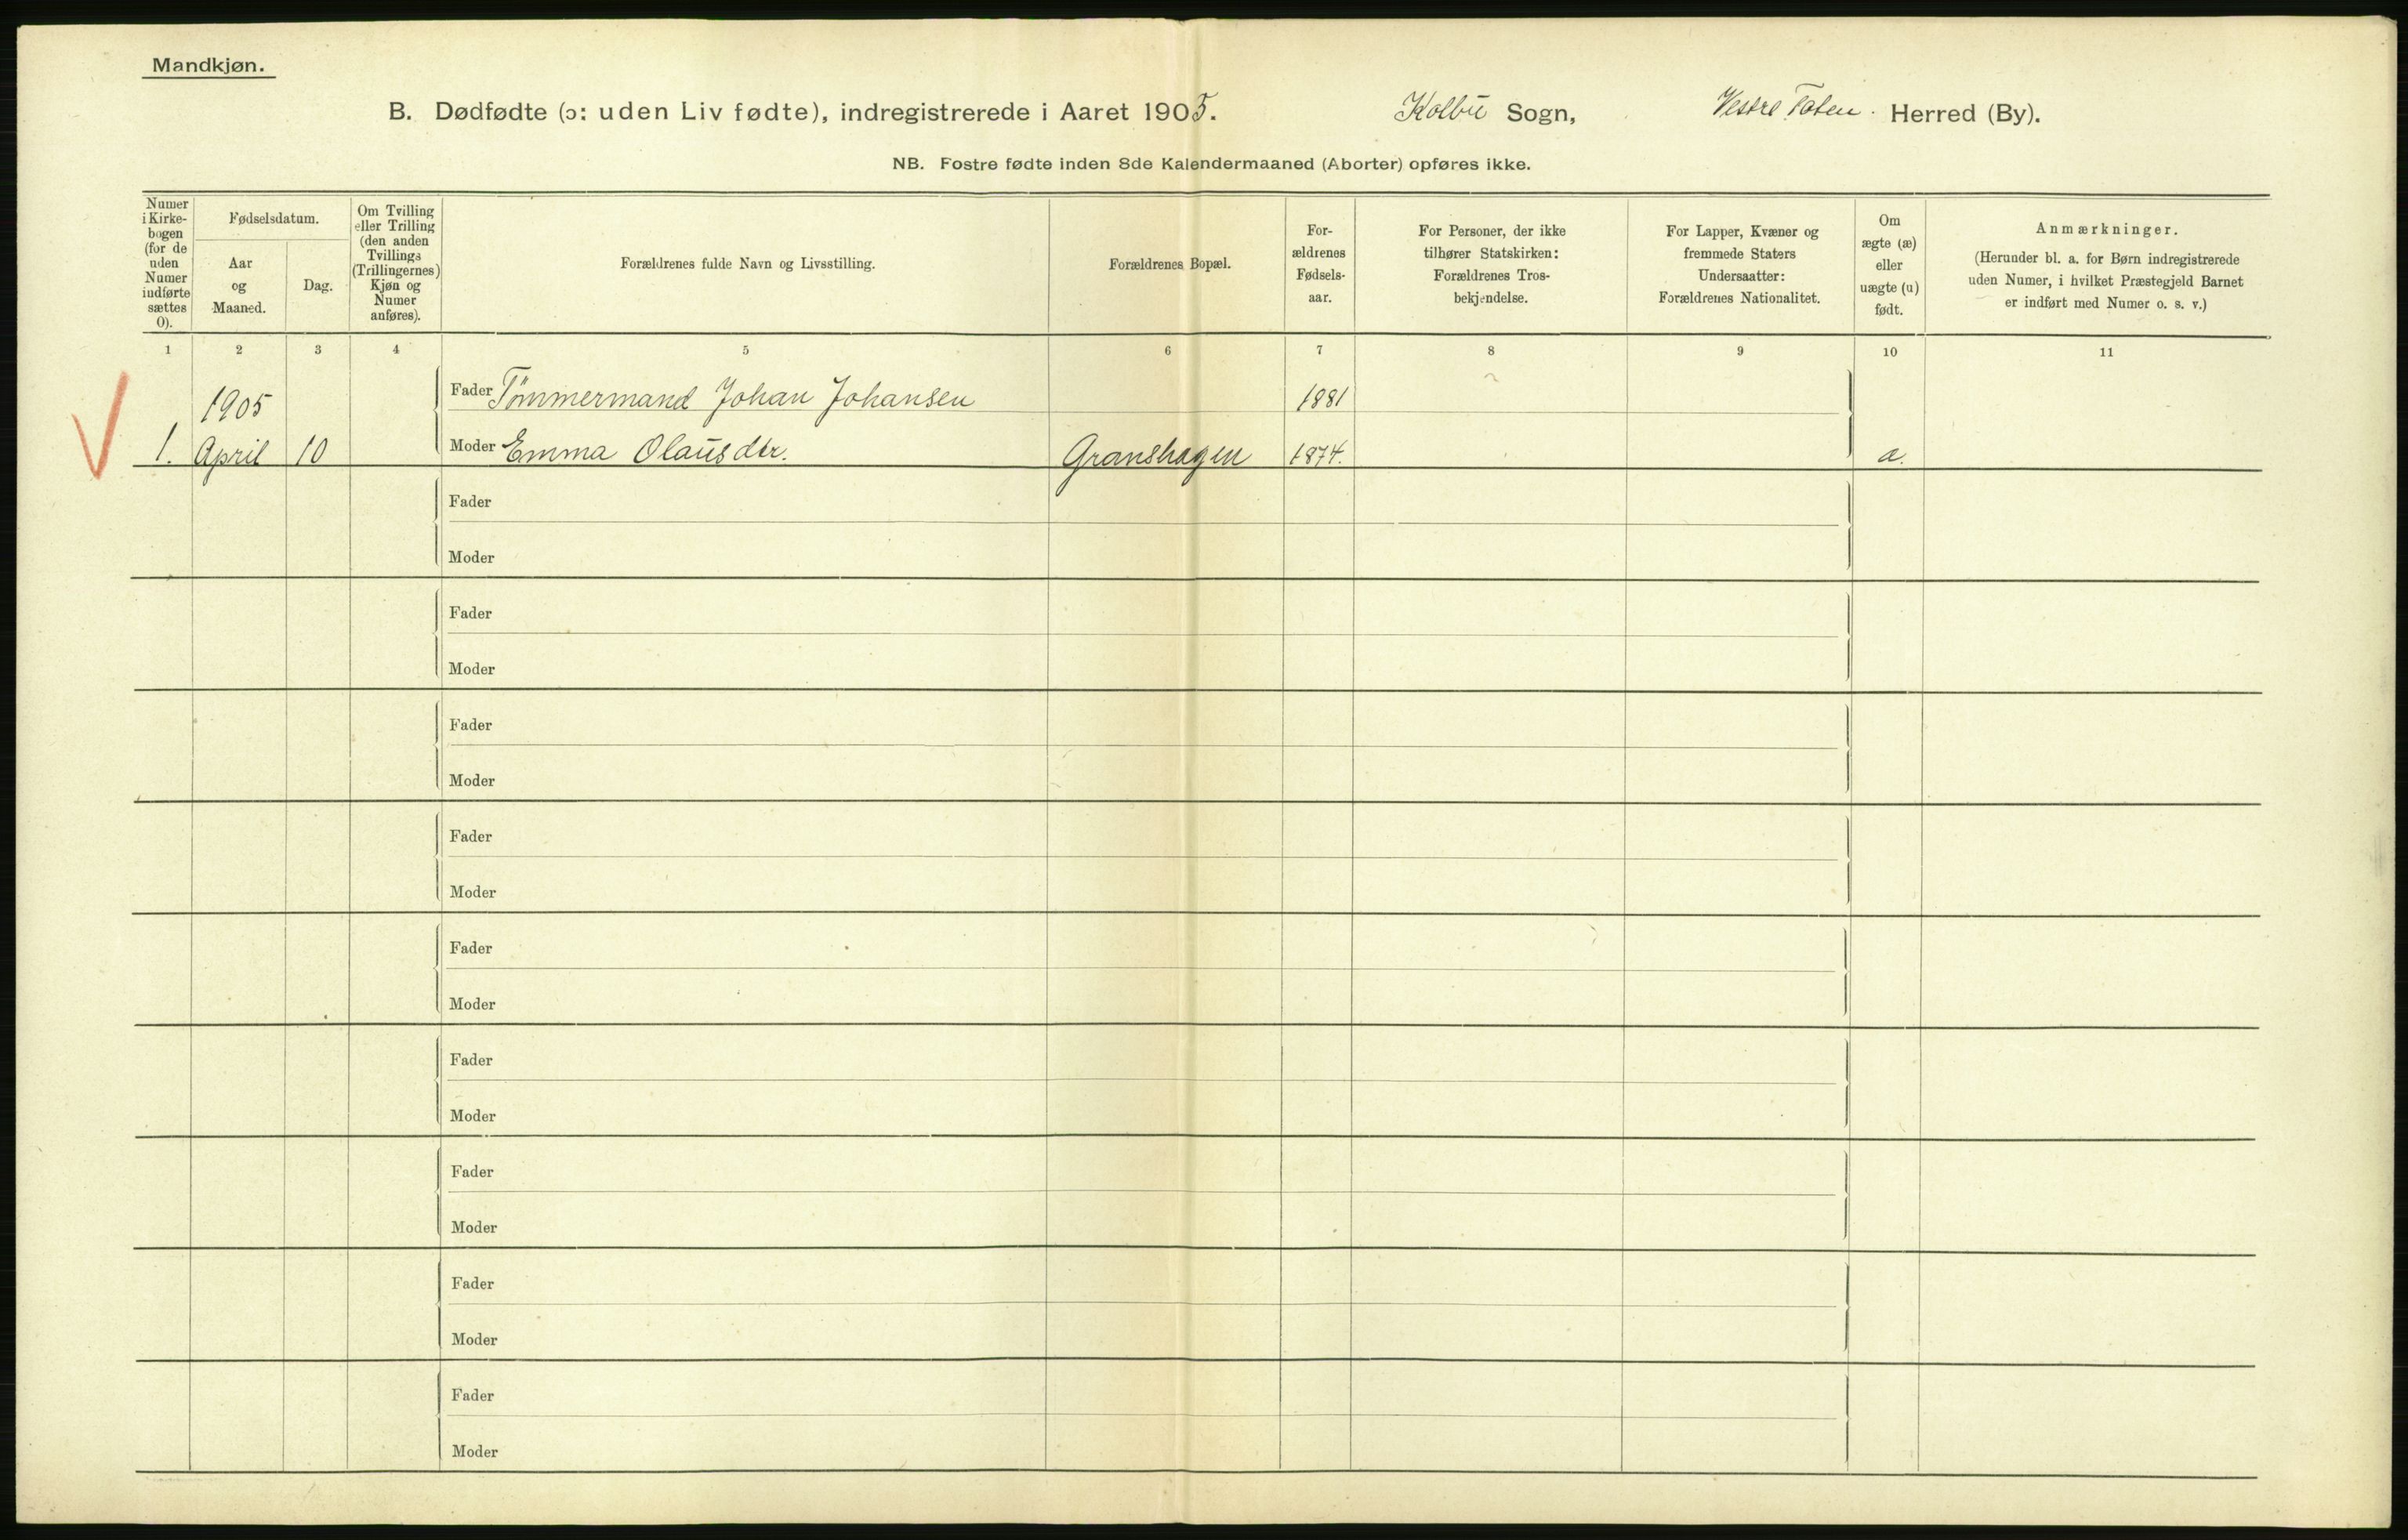 Mandkjøn.
B. Dødfødte (ɔ: uden Liv fødte), indregistrerede i Aaret 1905. Kolbu Sogn, Vestre Toten. Herred (By).
NB. Fostre fødte inden 8de Kalendermaaned (Aborter) opføres ikke.
Numer
i Kirke-
bogen
(for de
uden
Numer
indførte
sættes
0).
Fødselsdatum.
Aar
og
Maaned.
Dag.
Om Tvilling
eller Trilling
(den anden
Tvillings
(Trillingernes)
Kjøn og
Numer
anføres).
Forældrenes fulde Navn og Livsstilling.
Forældrenes Bopæl.
For-
ældrenes
Fødsels-
aar.
For Personer, der ikke
tilhører Statskirken:
Forældrenes Tros-
bekjendelse.
For Lapper, Kvæner og
fremmede Staters
Undersaatter:
Forældrenes Nationalitet.
Om
ægte (æ)
eller
uægte (u)
født.
Anmærkninger.
(Herunder bl. a. for Børn indregistrerede
uden Numer, i hvilket Præstegjeld Barnet
er indført med Numer o. s. v.)
1 2 3 4 5 6 7 8 9 10 11
1905 Fader Tömmermand Johan Johansen 1881
1. April 10 Moder Emma Olausdtr. Granshagen 1874. a.
Fader
Moder
Fader
Moder
Fader
Moder
Fader
Moder
Fader
Moder
Fader
Moder
Fader
Moder
Fader
Moder
Fader
Moder